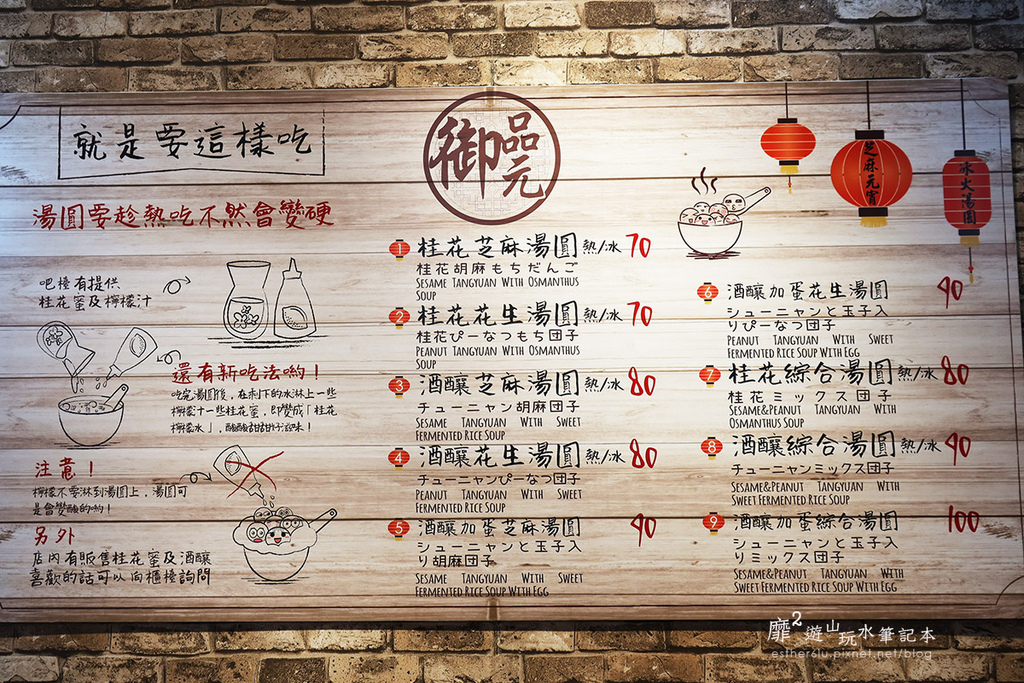 就是要這樣吃
湯圓要趁熱吃不然會變硬
吧檯有提供
桂花蜜及檸檬汁
還有新吃法喲！
吃完湯圓後，在剩下的冰淋上一些
檸檬汁一些桂花蜜，即變成「桂花
檸檬冰」，酸酸甜甜好滋味！
注意！
檸檬不要淋到湯圓上，湯圓可
是會變酸的約！
另外
店內有販售桂花蜜及酒釀
喜歡的話可以向櫃檯詢問
御品元
芝麻元宵
冰火湯圓
1 桂花芝麻湯圓 熱/冰 70
桂花胡麻もちだんご
Sesame Tangyuan With Osmanthus
Soup
2 桂花花生湯圓 熱/冰 70
桂花ぴーなつもち団子
Peanut Tangyuan With Osmanthus
Soup
3 酒釀芝麻湯圓 熱/冰 80
チューニャン胡麻団子
Sesame Tangyuan With Sweet
Fermented Rice Soup
4 酒釀花生湯圓 熱/冰 80
チューニャンぴーなつ団子
Peanut Tangyuan With Sweet
Fermented Rice Soup
5 酒釀加蛋芝麻湯圓 90
シューニャンと玉子入
り胡麻団子
Sesame Tangyuan With Sweet
Fermented Rice Soup With Egg
6 酒釀加蛋花生湯圓 90
シューニャンと玉子入
りぴーなつ団子
Peanut Tangyuan With Sweet
Fermented Rice Soup With Egg
7 桂花綜合湯圓 熱/冰 80
桂花ミックス団子
Sesame&Peanut Tangyuan With
Osmanthus Soup
8 酒釀綜合湯圓 熱/冰 90
チューニャンミックス団子
Sesame&Peanut Tangyuan With
Sweet Fermented Rice Soup
9 酒釀加蛋綜合湯圓 100
シューニャンと玉子入
りミックス団子
Sesame&Peanut Tangyuan With
Sweet Fermented Rice Soup With Egg
靡2遊山玩水筆記本
esther6lu.pixnet.net/blog